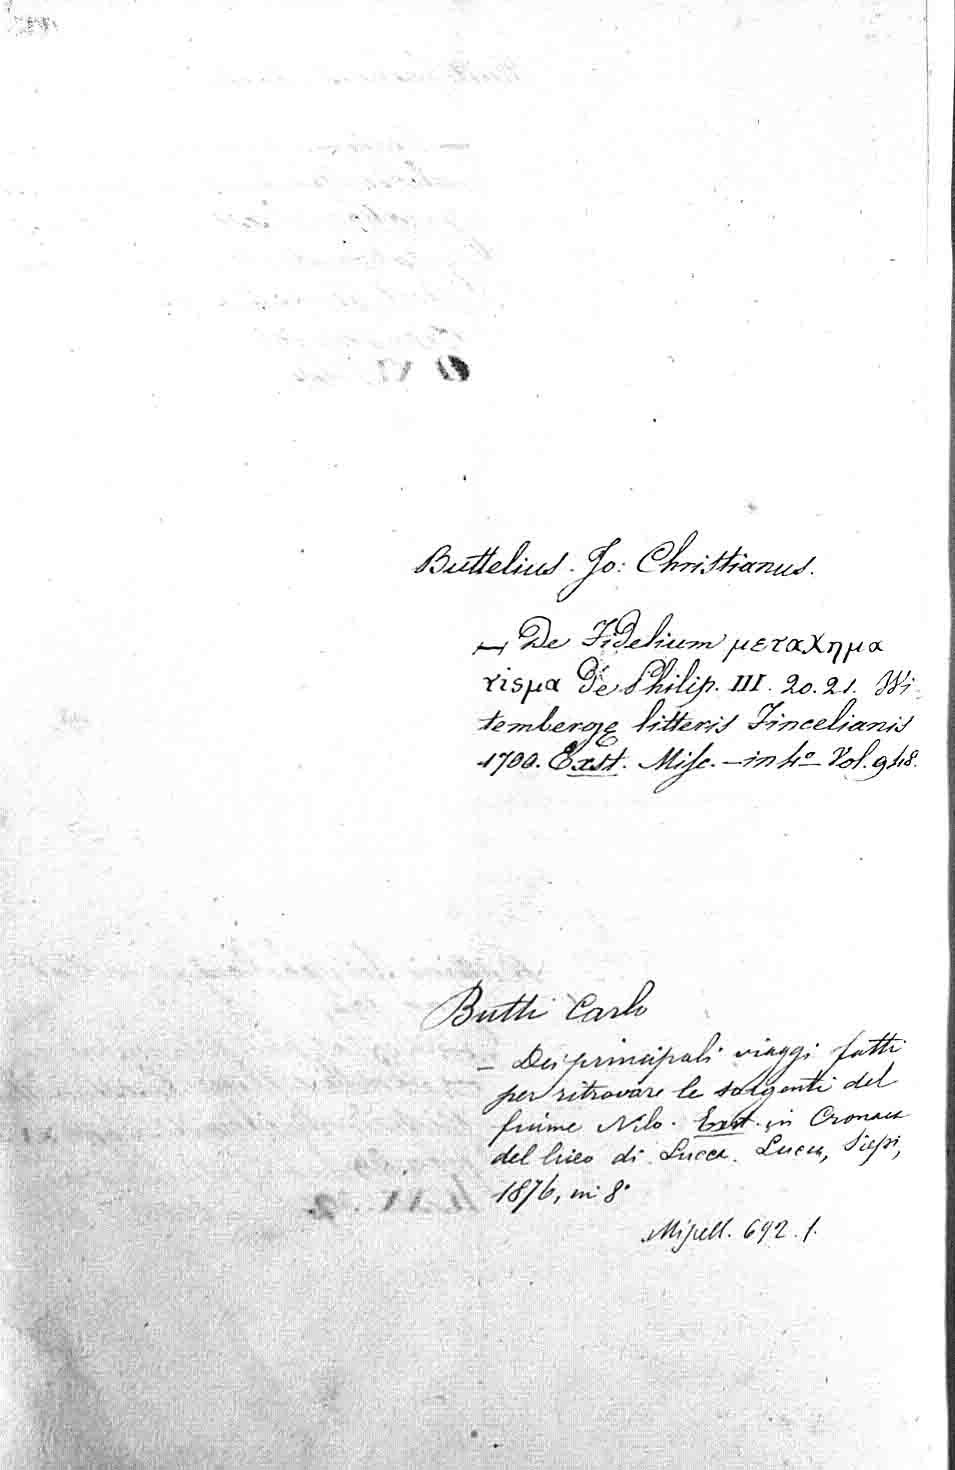 Buttelius. Jo: Christianus.
— De Fidelium μεταχημα
τισμα de Philip. III. 20. 21. Wi-
tembergę litteris Fincelianis
1700. Exst. Misc. — in 4º — Vol. 948.
Butti Carlo
— Dei principali viaggi fatti
per ritrovare le sorgenti del
fiume Nilo. Exst. in Cronaca
del liceo di Lucca. Lucca,
1876, in 8º
Miscell. 692. 1.